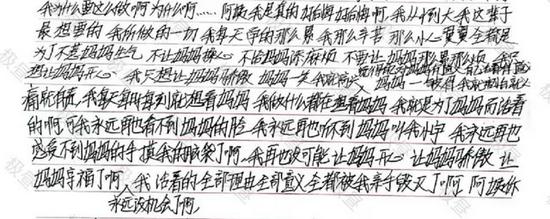 我为什么要这么做啊 为什么啊…… 阿姨 我是真的好怕啊 好怕啊 我从小到大我这辈子
最想要的 我所做的一切 我每天学的那么累 我那么辛苦 那么小心翼翼 全都是
为了不惹妈妈生气 不让妈妈操心 不给妈妈添麻烦 不要让妈妈那么累那么烦 我只
想让妈妈开心 我只想让妈妈骄傲 妈妈一笑 我就 妈妈一 我就
痛 我每天每时每刻 想着妈妈 我做什么都在想着妈妈 我就是为了妈妈而活着
的啊 可我永远再也看不到妈妈的脸 我永远再也听不到妈妈叫我小宇 我永远再也
感受不到妈妈的手摸我的脑袋了啊 我再也没可能 让妈妈开心 让妈妈骄傲 让
妈妈享福了啊 我活着的全部理由全部意义全都被我亲手毁灭了啊 阿姨你
永远没机会了啊